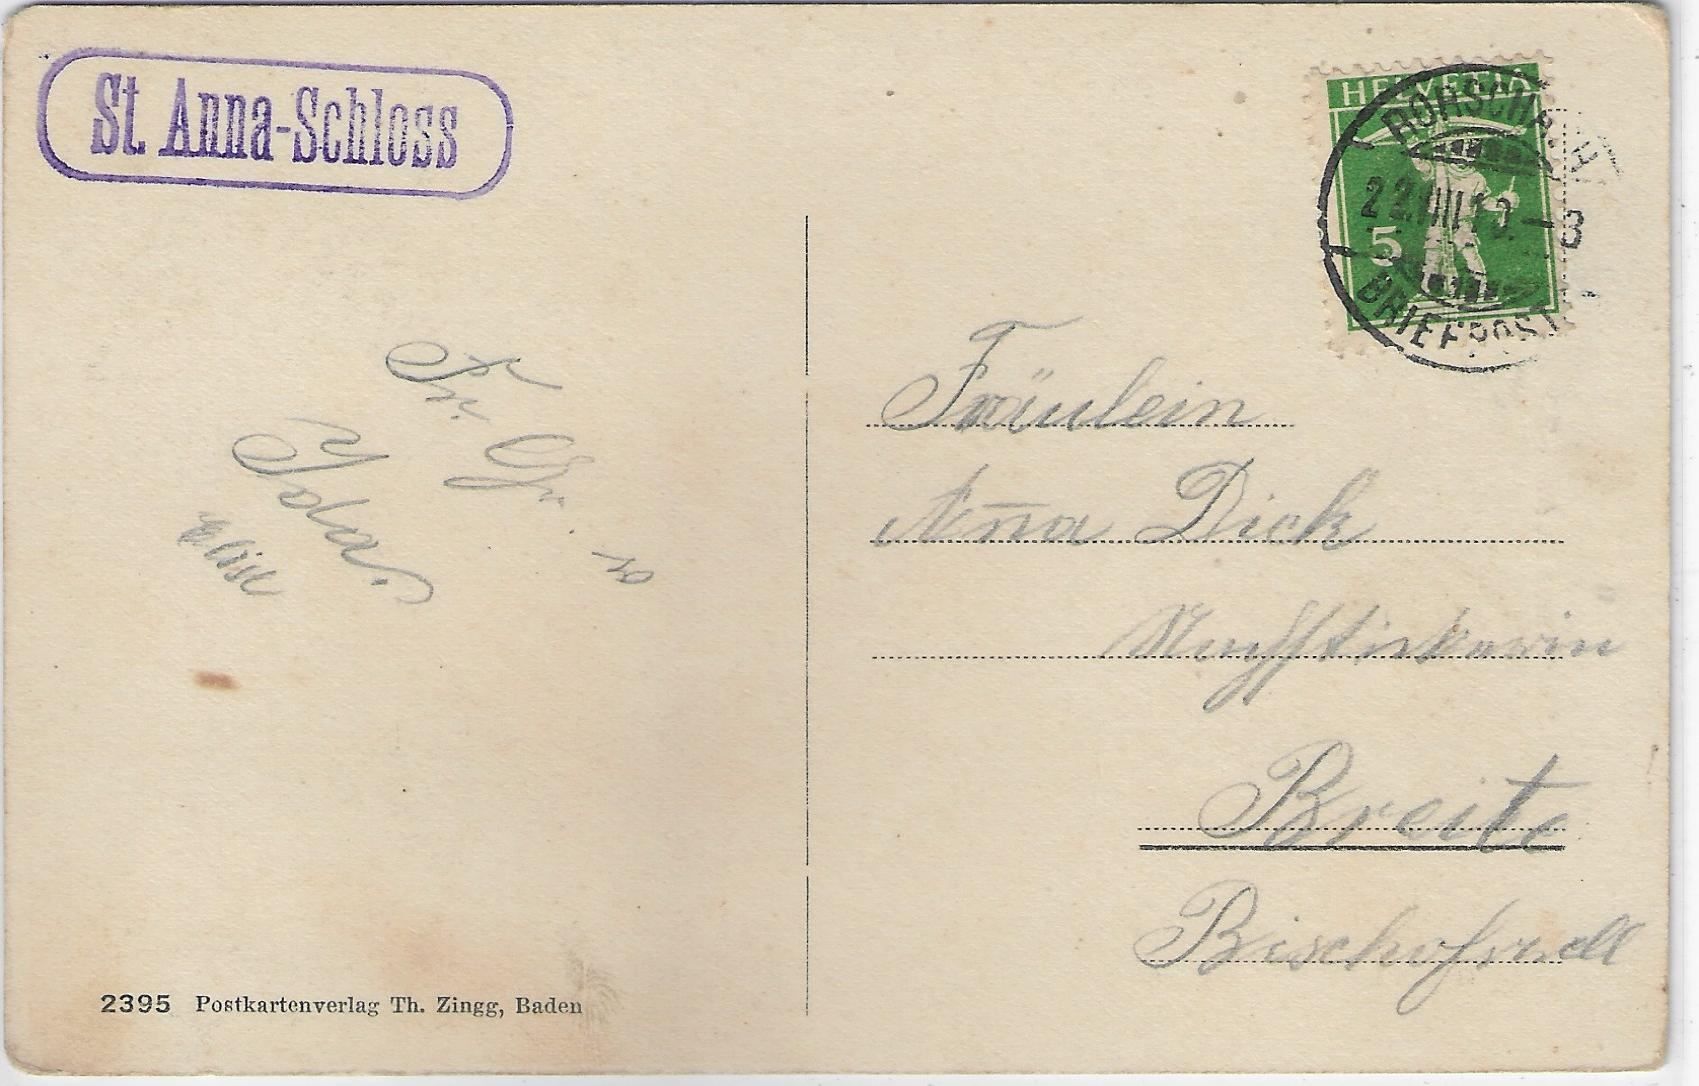 St. Anna-Schloss
HELVETIA
5
RORSCHACH
BRIEFPOST
Fr. Gr.
Ida
Fräulein
Anna Dick
Breite
Bischofszell
2395 Postkartenverlag Th. Zingg, Baden